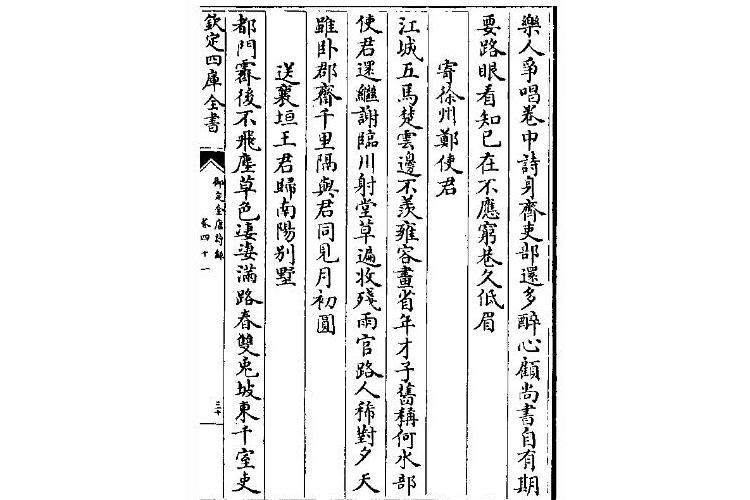 樂人爭唱卷中詩身齊吏部還多醉心顧尚書自有期
要路眼看知己在不應窮巷久低眉
寄徐州鄭使君
江城五馬楚雲邊不羨雍容畫省年才子舊稱何水部
使君還繼謝臨川射堂草遍收殘雨官路人稀對夕天
雖卧郡齋千里隔與君同見月初圓
送襄垣王君歸南陽別墅
都門霽後不飛塵草色淒淒滿路春雙兎坡東千室吏
欽定四庫全書
御定全唐詩錄
卷四十一
三十